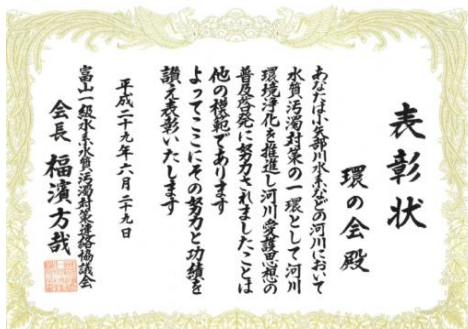 表彰状
環の会殿
あなたは小矢部川水系などの河川において
水質汚濁対策の一環として河川
環境浄化を推進し河川愛護思想の
普及啓発に努力されましたことは
他の模範であります
よってここにその努力と功績を
讃え表彰いたします
平成二十九年六月二十九日
富山一級水系水質汚濁対策連絡協議会
会長 福濱方哉